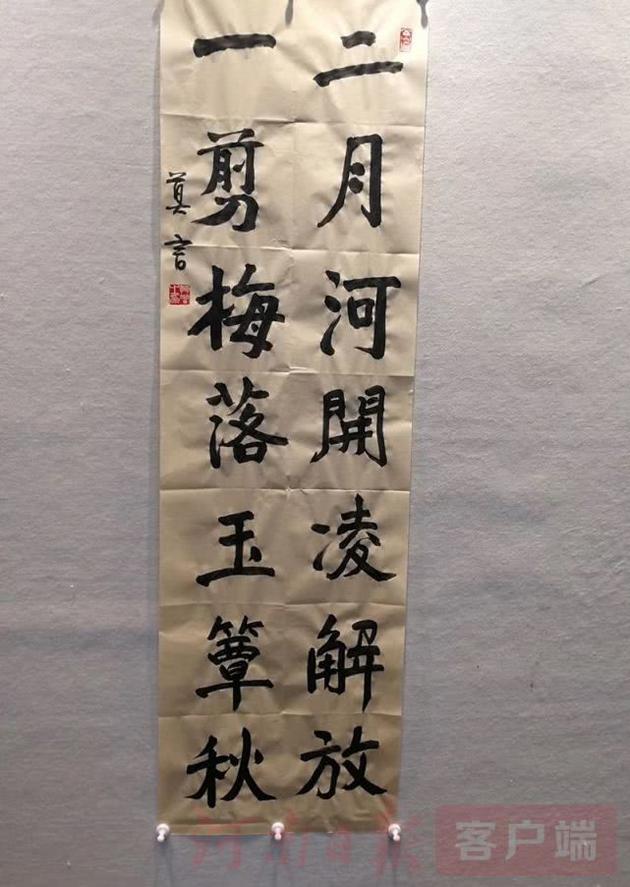 二月河開凌解放
一剪梅落玉簟秋
莫言
河南日报
客户端